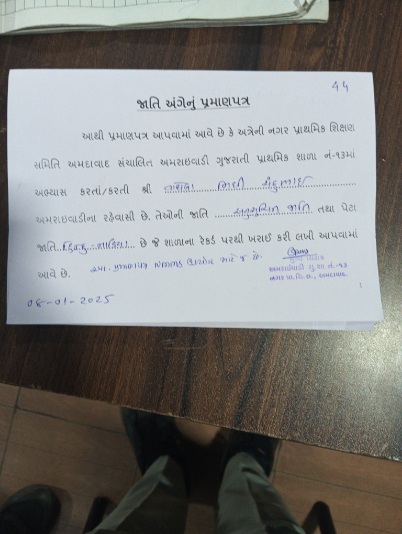 44
જાતિ અંગેનું પ્રમાણપત્ર
આથી પ્રમાણપત્ર આપવામાં આવે છે કે અત્રેની નગર પ્રાથમિક શિક્ષણ
સમિતિ અમદાવાદ સંચાલિત અમરાઇવાડી ગુજરાતી પ્રાથમિક શાળા નં-૧૩માં
અભ્યાસ કરતાં/કરતી શ્રી
અમરાઇવાડીના રહેવાસી છે. તેઓની જાતિ અનુસુચિત જાતિ તથા પેટા
જાતિ હિન્દુ છે જે શાળાના રેકર્ડ પરથી ખરાઈ કરી લખી આપવામાં
આવે છે.
આ પ્રમાણપત્ર માટે જ છે.
અમરાઇવાડી ગુ.શા.નં-૧૩
અમદાવાદ
08-01-2025